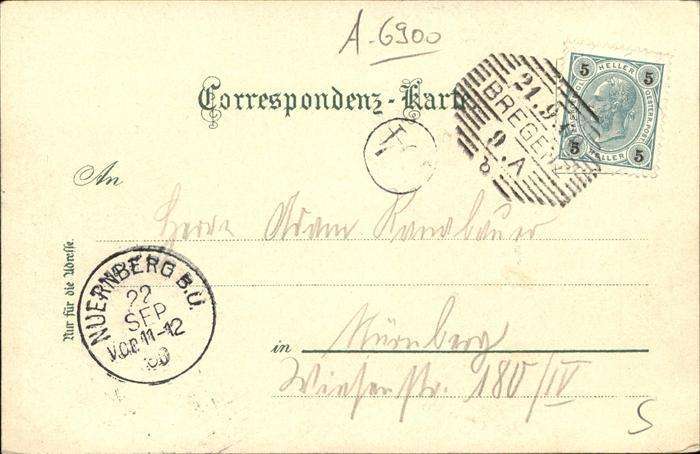 A-6900
5 HELLER 5
5 HELLER 5
21.9.
BREGENZ
9.A
Correspondenz-Karte
An
Herrn Adam
Nur für die Adresse.
NUERNBERG B.Ü.
22
SEP
VOR 11-12
00
in Nürnberg
Wiesenstr. 180/IV
S